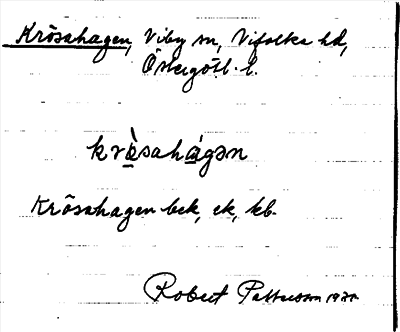 Krösahagen, Viby sn, Vifolka hd,
Östergötl. l.
kròsahágən
Krösahagen bek, ek, kb.
Robert Pettersson